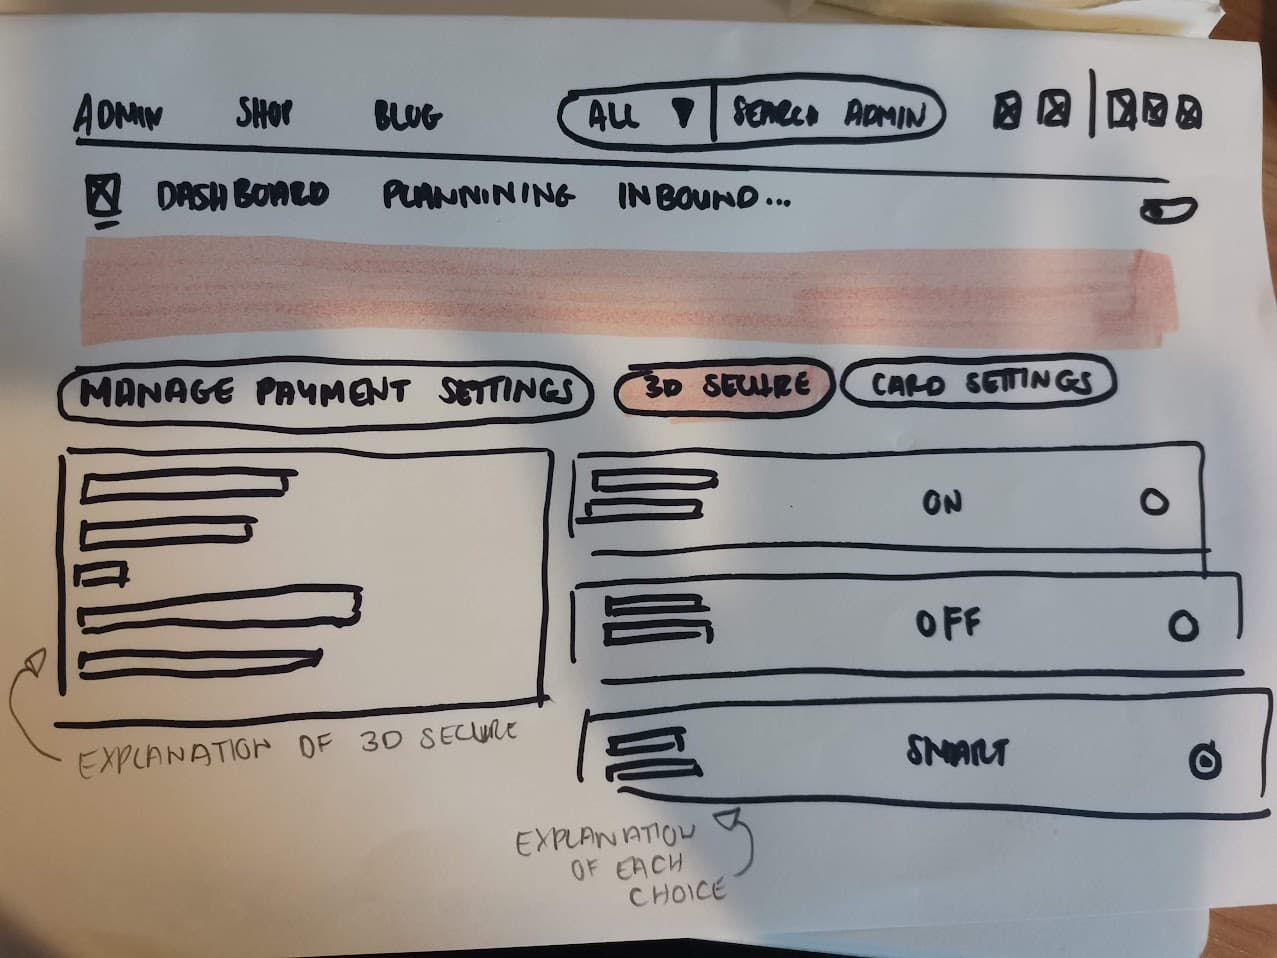 ADMIN SHOP BLOG ALL SEARCH ADMIN
DASHBOARD PLANNINING INBOUND...
MANAGE PAYMENT SETTINGS 3D SECURE CARD SETTINGS
ON
OFF
SMART
EXPLANATION OF 3D SECURE
EXPLANATION
OF EACH
CHOICE